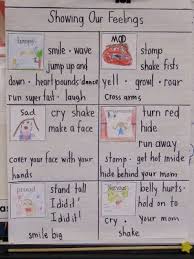 Showing Our Feelings
happy
smile • wave
jump up and
down • heart pounds • dance
run super fast • laugh
MAD
stomp
shake fists
yell • growl • roar
cross arms
Sad
cry shake
make a face
cover your face with your
hands
turn red
hide
run away
stomp • get hot inside
hide behind your mom
proud
stand tall
I did it!
I did it!
smile big
Nervous
belly hurts •
hold on to
cry • your mom
shake